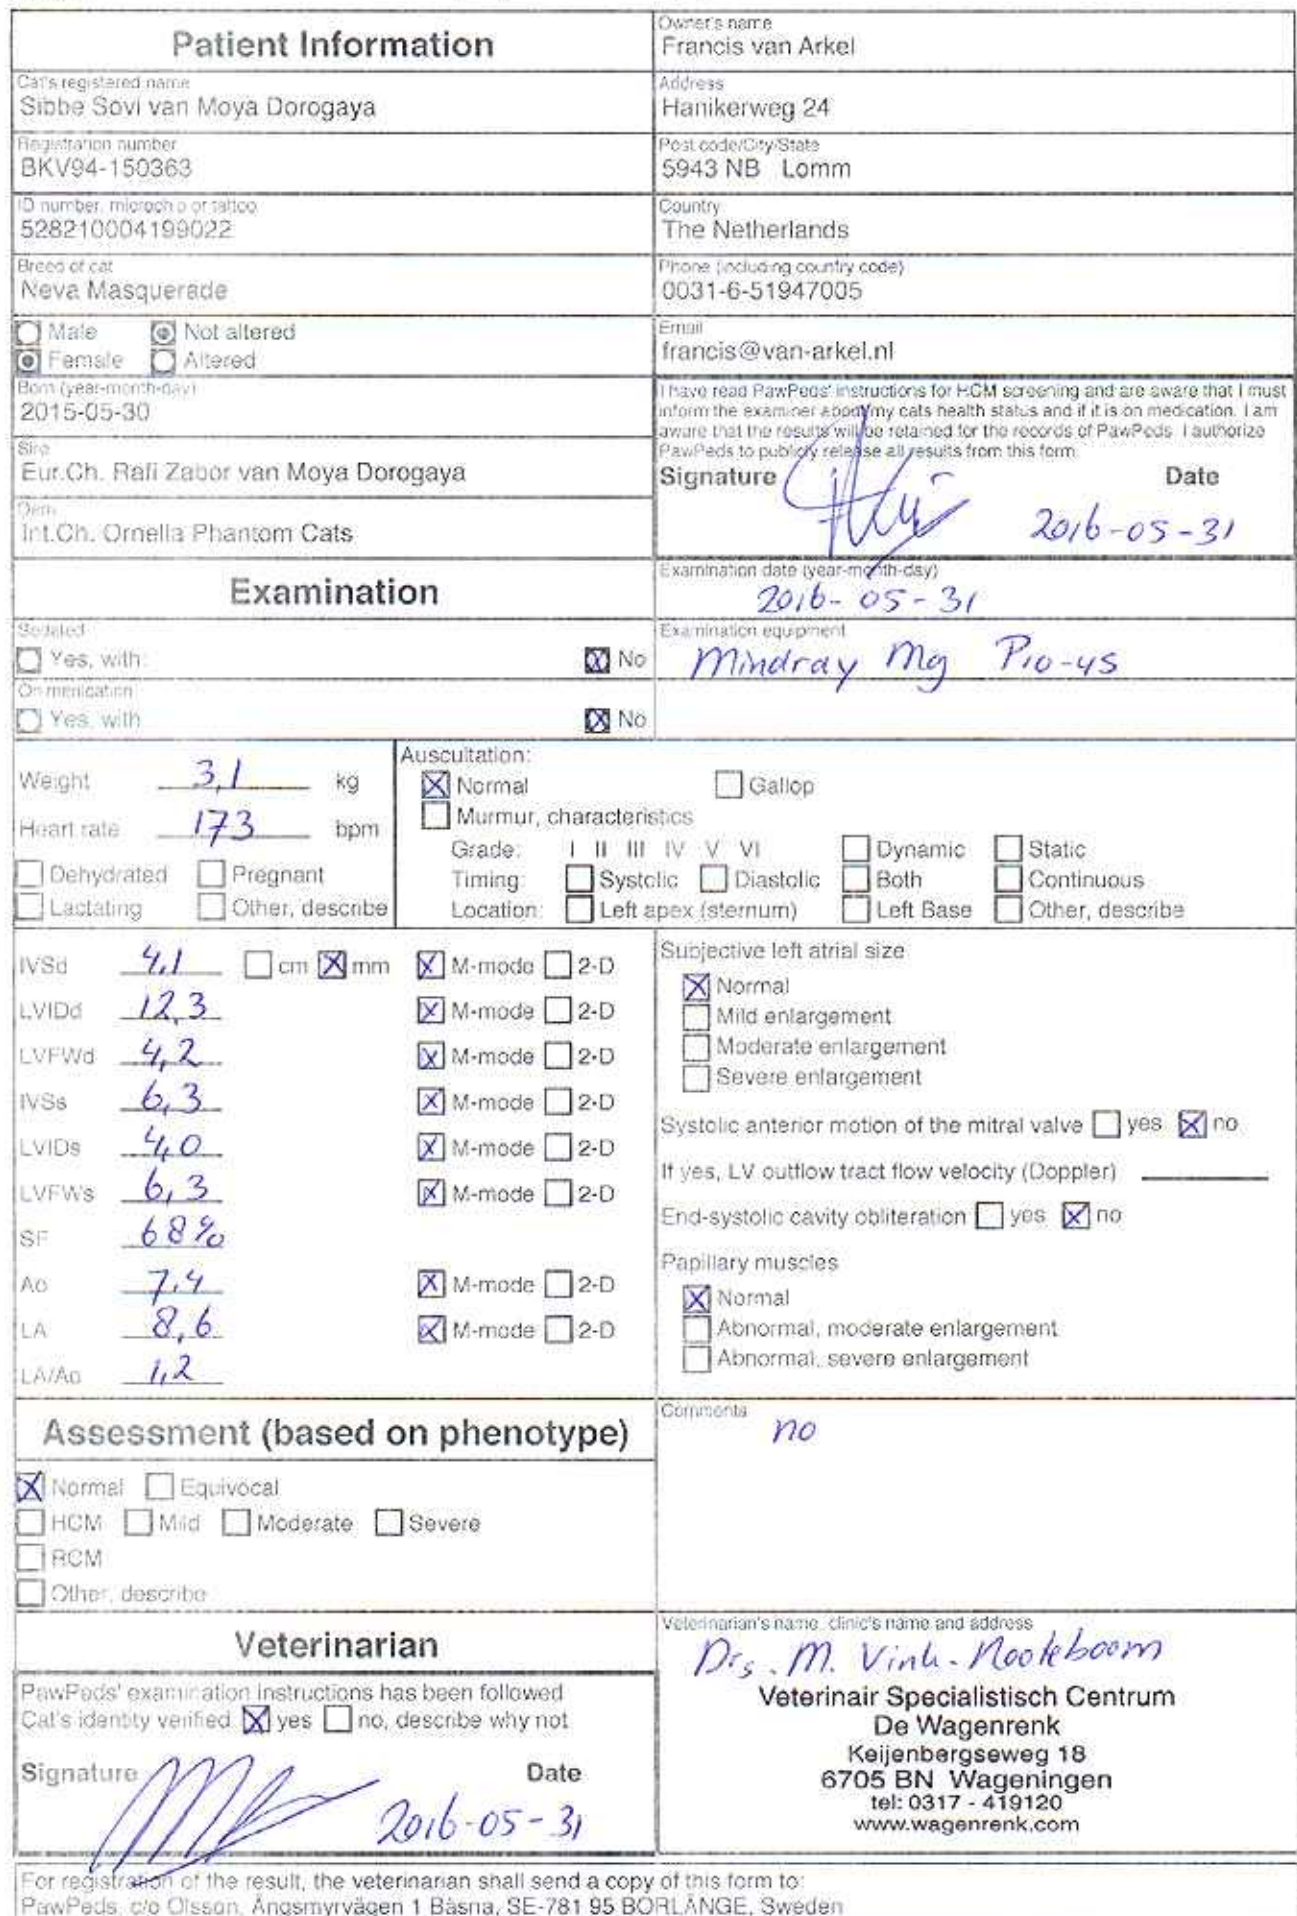 Patient Information
Owner's name
Francis van Arkel
Cat's registered name
Sibbe Sovi van Moya Dorogaya
Address
Hanikerweg 24
Registration number
BKV94-150363
Post code/City/State
5943 NB Lomm
ID number, microchip or tattoo
528210004199022
Country
The Netherlands
Breed of cat
Neva Masquerade
Phone (including country code)
0031-6-51947005
Male Not altered
Female Altered
Email
francis@van-arkel.nl
Born (year-month-day)
2015-05-30
Sire
Eur.Ch. Rafi Zabor van Moya Dorogaya
Dam
Int.Ch. Ornella Phantom Cats
I have read PawPeds' instructions for HCM screening and are aware that I must
inform the examiner about my cats health status and if it is on medication. I am
aware that the results will be retained for the records of PawPeds. I authorize
PawPeds to publicly release all results from this form.
Signature Date
2016-05-31
Examination
Examination date (year-month-day)
2016-05-31
Sedated
Yes, with: No
Examination equipment
Mindray Mg Pro-us
On medication
Yes, with No
Weight 3,1 kg
Heart rate 173 bpm
Dehydrated Pregnant
Lactating Other, describe
Auscultation:
Normal Gallop
Murmur, characteristics
Grade: I II III IV V VI Dynamic Static
Timing: Systolic Diastolic Both Continuous
Location: Left apex (sternum) Left Base Other, describe
IVSd 4,1 cm mm M-mode 2-D
LVIDd 12,3 M-mode 2-D
LVFWd 4,2 M-mode 2-D
IVSs 6,3 M-mode 2-D
LVIDs 4,0 M-mode 2-D
LVFWs 6,3 M-mode 2-D
SF 68%
Ao 7,4 M-mode 2-D
LA 8,6 M-mode 2-D
LA/Ao 1,2
Subjective left atrial size
Normal
Mild enlargement
Moderate enlargement
Severe enlargement
Systolic anterior motion of the mitral valve yes no
If yes, LV outflow tract flow velocity (Doppler)
End-systolic cavity obliteration yes no
Papillary muscles
Normal
Abnormal, moderate enlargement
Abnormal, severe enlargement
Assessment (based on phenotype)
Normal Equivocal
HCM Mild Moderate Severe
RCM
Other, describe
Comments
no
Veterinarian
PawPeds' examination instructions has been followed
Cat's identity verified yes no, describe why not
Signature Date
2016-05-31
Veterinarian's name, clinic's name and address
Drs. M. Vink-Nooteboom
Veterinair Specialistisch Centrum
De Wagenrenk
Keijenbergseweg 18
6705 BN Wageningen
tel: 0317 - 419120
www.wagenrenk.com
For registration of the result, the veterinarian shall send a copy of this form to:
PawPeds, c/o Olsson, Ängsmyrvägen 1 Båsna, SE-781 95 BORLÄNGE, Sweden